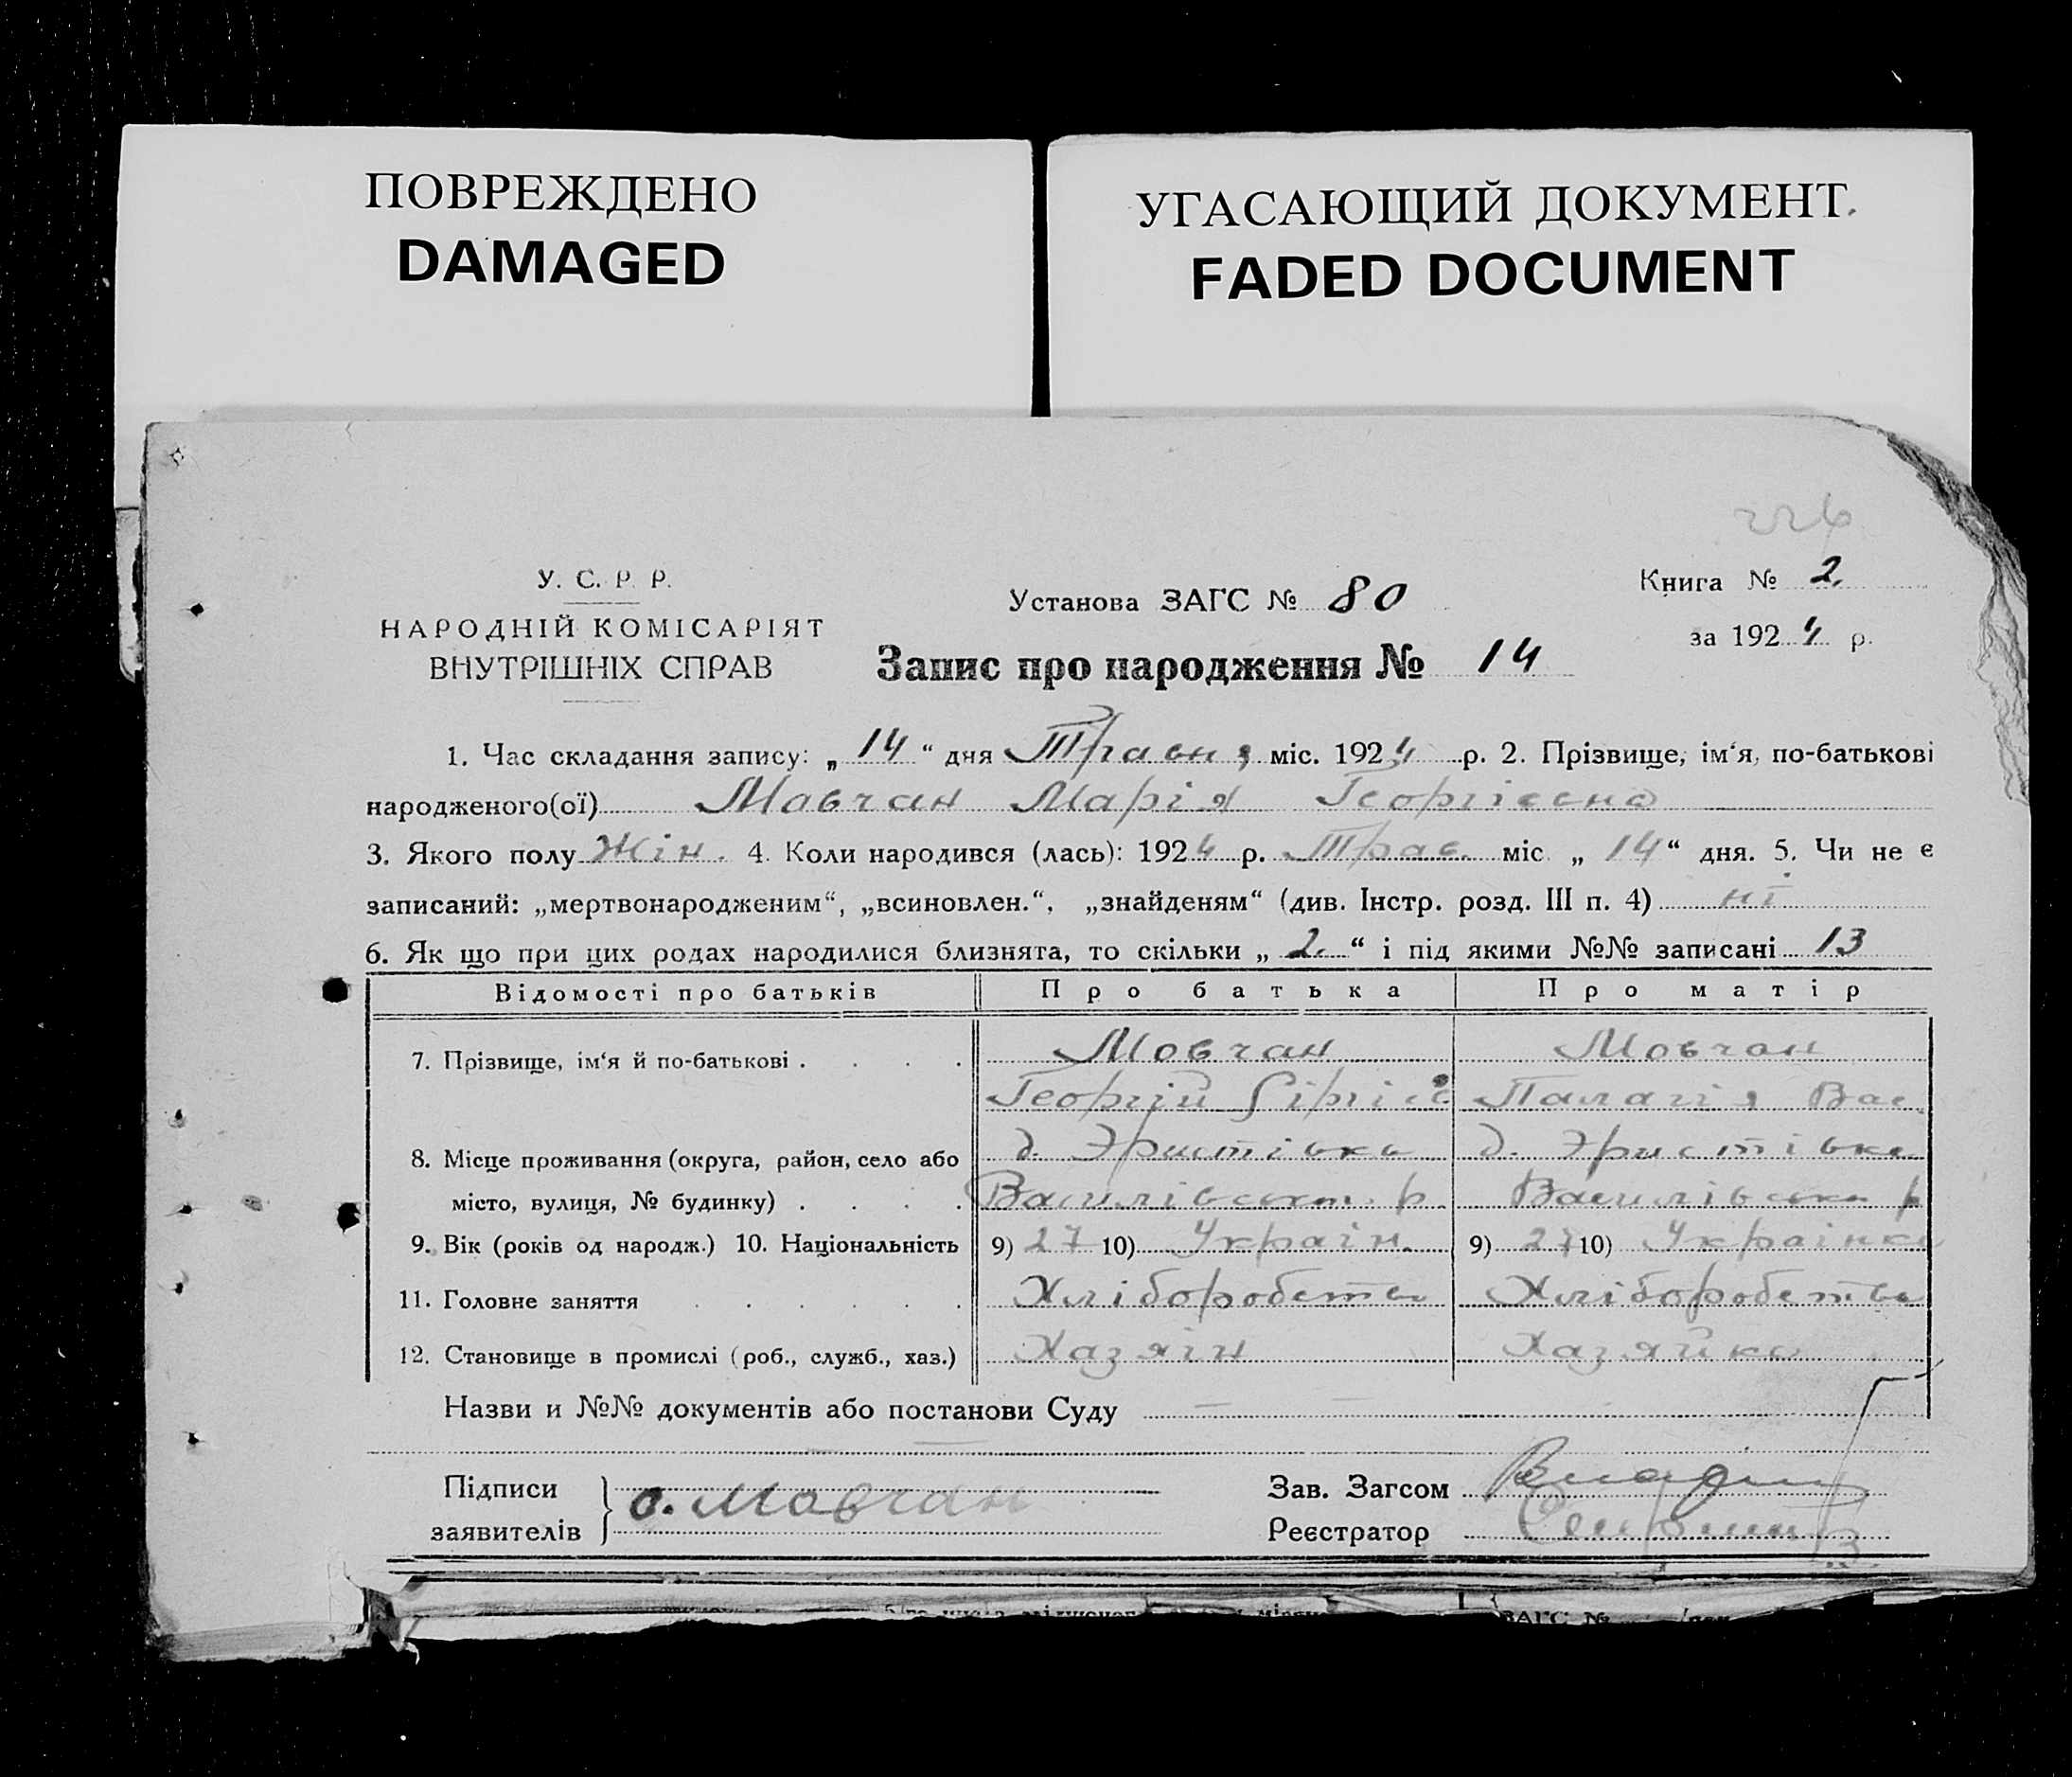 ПОВРЕЖДЕНО
DAMAGED
УГАСАЮЩИЙ ДОКУМЕНТ.
FADED DOCUMENT
226
У. С. Р. Р.
НАРОДНІЙ КОМІСАРІЯТ
ВНУТРІШНІХ СПРАВ
Установа ЗАГС № 80
Запис про народження № 14
Книга № 2.
за 1924 р.
1. Час складання запису: „14“ дня Травня міс. 1924 р. 2. Прізвище, ім‘я, по-батькові
народженого(ої) Мовчан Марія Георгієвна
3. Якого полу Жін. 4. Коли народився (лась): 1924 р. Трав. міс. „14“ дня. 5. Чи не є
записаний: „мертвонародженим“, „всиновлен.“, „знайденям“ (див. Інстр. розд. III п. 4) ні
6. Як що при цих родах народилися близнята, то скільки „2.“ і під якими №№ записані 13
Відомості про батьків Про батька Про матір
7. Прізвище, ім‘я й по-батькові . . . . Мовчан Мовчан
Георгій Палагія Вас.
8. Місце проживання (округа, район, село або д. Эристівка д. Эристівка
місто, вулиця, № будинку) . . . . Василівськ. р. Василівськ р
9. Вік (років од народж.) 10. Національність 9) 27 10) Україн. 9) 27 10) Українка
11. Головне заняття . . . . . . Хліборобство Хліборобство
12. Становище в промислі (роб., служб., хаз.) Хазяїн Хазяйка
Назви и №№ документів або постанови Суду
Підписи
заявителів } Мовчан
Зав. Загсом
Реєстратор
ЗАГС №